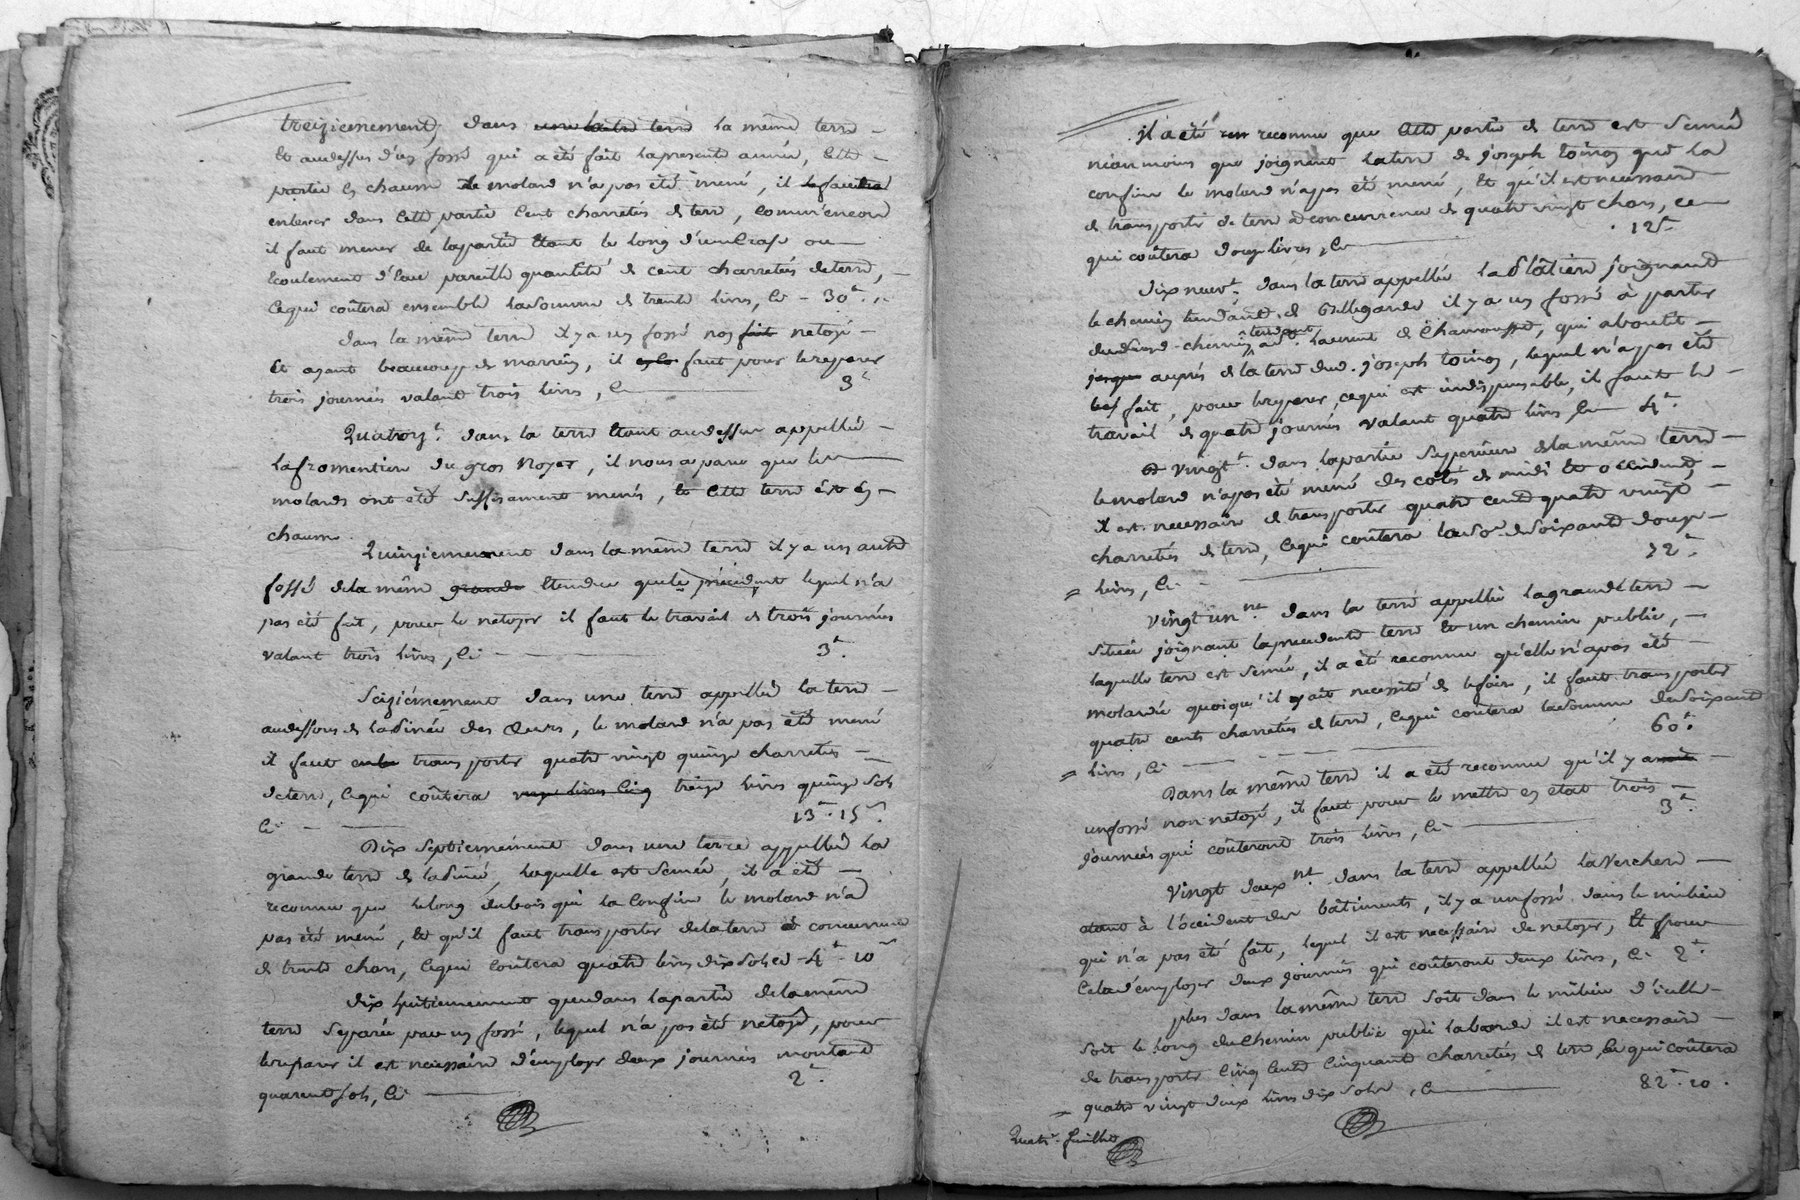 treizicmement, dans une autre terre la même terre
et audessus d'un fossé qui a été fait la presente année, cette
partie en chaume le molard n'a pas été mené, il le faudra
enlever dans cette partie cent charretées de terre, comm'encore
il faut mener de la partie étant le long d'un ou
écoulement d'eau pareille quantité de cent charretées de terre,
ce qui coûtera ensemble la somme de trente livres, cy - 30ᵗ
dans la même terre il y a un fossé non fait netoyé
et ayant beaucoup de marrein, il faut pour le reparer
trois journées valant trois livres, cy 3ᵗ
Quatorzᵗ. dans la terre étant audessus appellée
la fromentière du gros Noyer, il nous a paru que les
molards ont été suffisament menés, et cette terre est en
chaume.
Quinziemement dans la même terre il y a un autre
fossé de la même grande étendue que le précédent lequel n'a
pas été fait, pour le netoyer il faut le travail de trois journées
valant trois livres, cy 3ᵗ.
Seiziémement dans une terre appellée la terre
audessous de la des , le molard n'a pas été mené
il faut transporter quatre vingt quinze charretées
de terre, ce qui coûtera livres cinq treize livres quinze sols
cy 13ᵗ. 15ˢ.
Dix septiemement dans une terre appellée la
grande terre de la , laquelle est semée, il a été
reconnu que le long du bois qui la confine le molard n'a
pas été mené, et qu'il faut transporter de la terre à concurrence
de trente chars, ce qui coûtera quatre livres dix sols cy - 4ᵗ - 10ˢ
dix huitiemement que dans la partie de la même
terre separée par un fossé, lequel n'a pas été netoyé, pour
le reparer il est necessaire d'employer deux journées montant
quarente sols, cy 2ᵗ.
il a été reconnu que cette partie de terre est semée
nianmoins que joignant la terre de joseph toinon que la
confine le molard n'a pas été mené, et qu'il est necessaire
de transporter de terre à concurrence de quatre vingt chars, ce
qui coûtera douze livres, cy 12ᵗ
dix neuvᵗ. dans la terre appellée la Platière joignant
le chemin tendant de Bellegarde il y a un fossé à partir
dudt. chemin tendant à St. Laurent de Chamousset, qui aboutit
jusque auprés de la terre dud. joseph toinon, lequel n'a pas été
fait, pour le reparer, ce qui est indispensable, il faut le
travail de quatre journées valant quatre livres cy 4ᵗ.
Vingtᵗ. dans la partie superieure de la même terre
le molard n'a pas été mené des cotés de midi et occident,
il est necessaire de transporter quatre cent quatre vingt
charretées de terre, ce qui coûtera la so. de soixante douze
livres, cy 72ᵗ.
Vingt unⁿᵗ. dans la terre appellée la grande terre
située joignant la precedente terre et un chemin public,
laquelle terre est semée, il a été reconnu qu'elle n'a pas été
molardée quoiqu'il y ait necessité de le faire, il faut transporter
quatre cents charretées de terre, ce qui coûtera la somme de soixante
livres, cy 60ᵗ.
Dans la même terre il a été reconnu qu'il y a
un fossé non netoyé, il faut pour le mettre en état trois
journées qui coûteront trois livres, cy 3ᵗ.
Vingt deuxⁿᵗ. dans la terre appellée la Verchere
étant à l'occident des bâtiments, il y a un fossé dans le milieu
qui n'a pas été fait, lequel il est necessaire de netoyer, et pour
cela d'employer deux journées qui coûteront deux livres, cy 2ᵗ.
plus dans la même terre soit dans le milieu d'icelle
soit le long du chemin public qui l'aborde il est necessaire
de transporter cinq cent cinquante charretées de terre, ce qui coûtera
quatre vingt deux livres dix sols, cy 82ᵗ. 10.
Quatrᵉ. feuillet